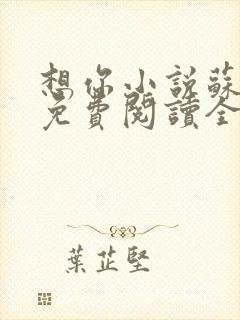 想你小說蘇
免費閱讀全
葉芷堅